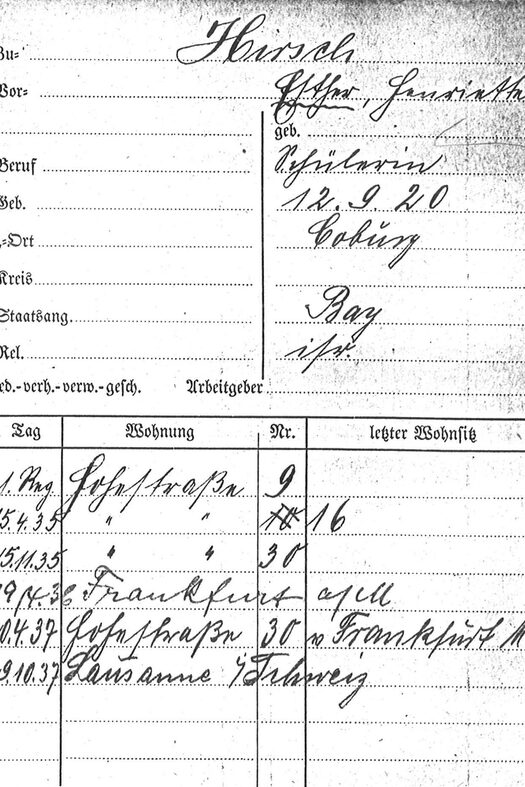 Zu- Hirsch
Vor- Esther, Henriette
geb.
Beruf Schülerin
Geb. 12.9.20
-Ort Coburg
Kreis
Staatsang. Bay
Rel. isr.
ed.-verh.-verw.-gesch. Arbeitgeber
Tag Wohnung Nr. letzter Wohnsitz
1. Reg Hohestraße 9
15.4.35 " " 10 16
15.11.35 " " 30
Frankfurt a/M
0.4.37 Hohestraße 30 v Frankfurt M
9.10.37 Lausanne i/Schweiz